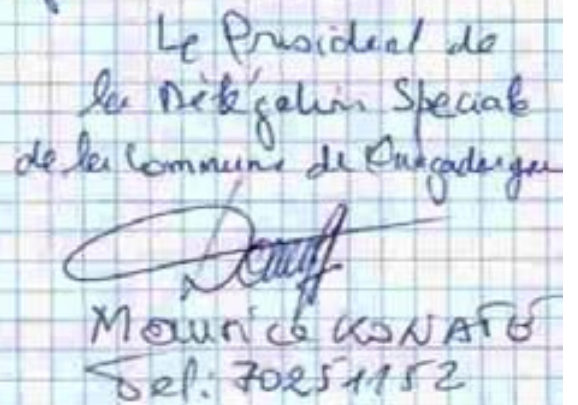 Le President de
la Délégation Speciale
de la Commune de Ouagadougou
Maurice KONATE
Tel: 70251152